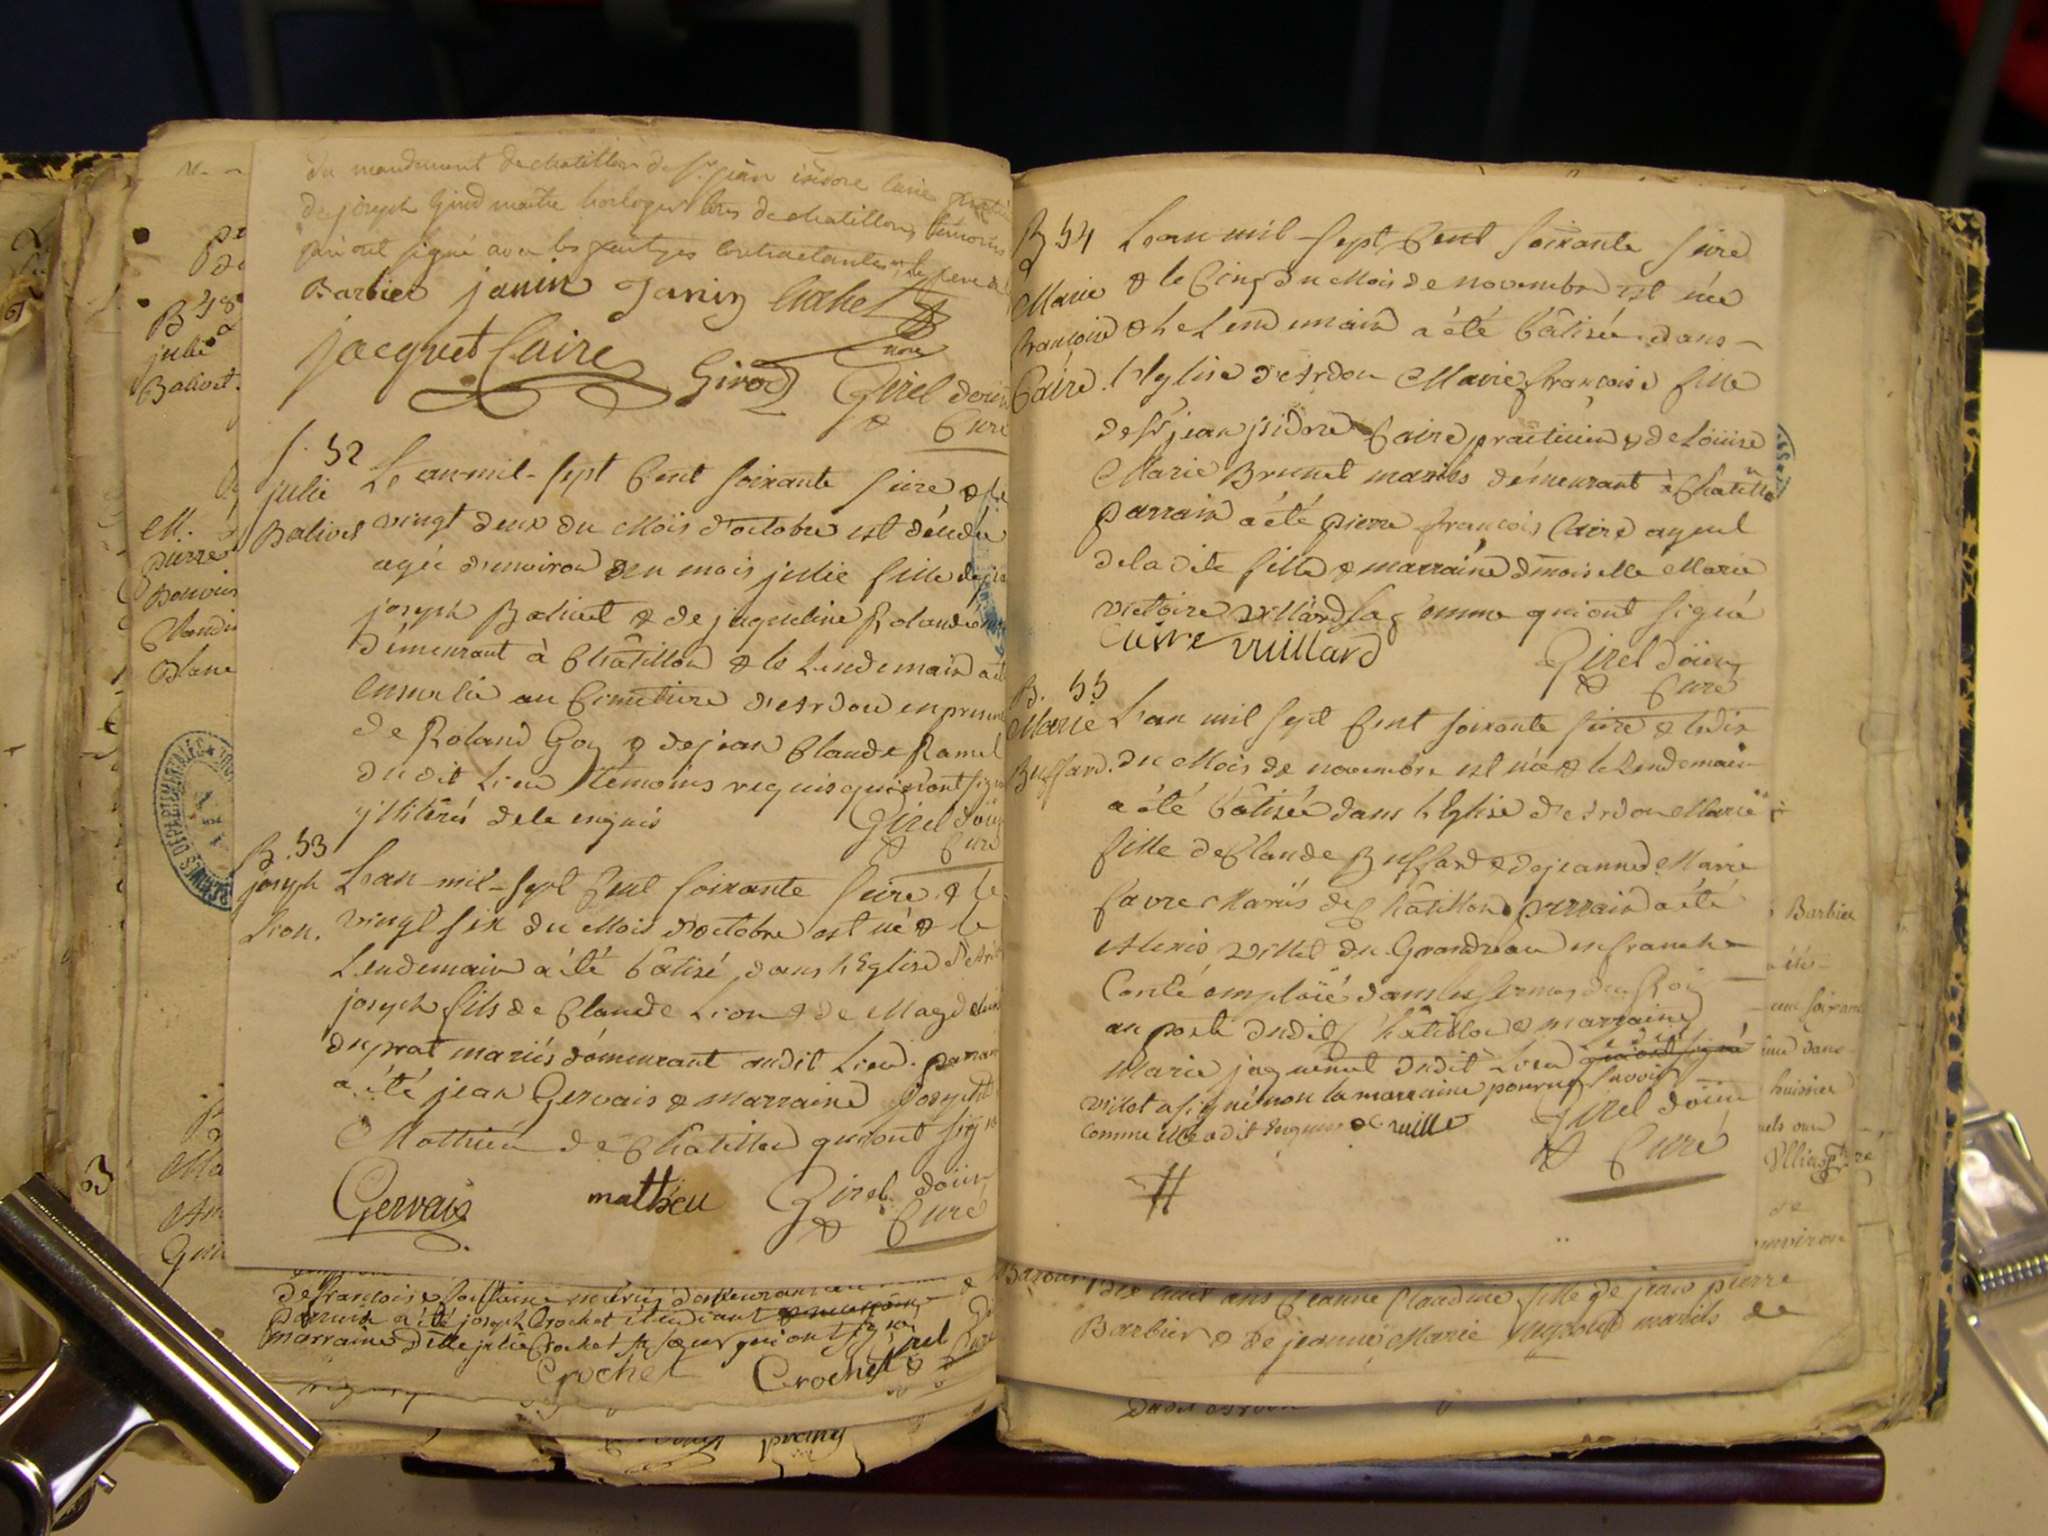 du mandement de chatillon de Sr jean isidore Caire
de joseph Girod maitre horloger tous de chatillon, temoins
qui ont signé avec les parties contractantes
Barbier janin Janin Crochet
jacquet Caire Girod Girel doïen
& Curé
S. 52
julie
Balivet
L'an mil-sept Cent soixante seize & le
vingt deux du Mois d'octobre est décédée
agée d'environ un mois julie fille de
joseph Balivet & de jaqueline Roland
démeurant à Châtillon & le Lendemain a été
ensevelie au Cimétiere d'Ardon en presence
de Roland Goy & de jean Claude Ramel
du dit Lieu témoins requis qui n'ont signé
illitérés de ce enquis Girel doïen
& Curé
B. 53
joseph
Lion.
L'an-mil-sept Cent soixante seize & le
vingt six du Mois d'octobre est né & le
Lendemain a été bâtisé dans l'Eglise d'Ardon
joseph fils de Claude Lion & de Magdelaine
duprat mariés démeurant audit Lieu. parrain
a été jean Gervais & marraine joseph
Mathieu de Châtillon qui ont signé
Gervais mathieu Girel doïen
& Curé
B 54
Marie
françoise
Caire.
L'an-mil-sept Cent soixante seize
& le Cinq du Mois de novembre est née
& le Lendemain a été bâtisée dans
l'Eglise d'Ardon Marie françoise fille
de Sr jean isidore Caire praticien & de Loüise
Marie Brunet mariés démeurant à Châtillon
parrain a été pierre françois Caire ayeul
de la dite fille & marraine dmoiselle Marie
victoire villard sag femme qui ont signé
Caire vuillard Girel doïen
& Curé
B. 55
Marie
Buffard.
L'an mil sept Cent soixante seize & le dix
du Mois de novembre est née & le Lendemain
a été bâtisée dans l'Eglise d'Ardon Marie
fille de Claude Buffard & de jeanne Marie
favre Mariés de Châtillon parrain a été
Alexis villet du Grandvau en franche
Conté emploïé dans les fermes du Roi
au poste dudit Châtillon & marraine
Marie jaquenet dudit Lieu Ledit qui ont signé
villot a signé non la marraine pour ne savoir
comme elle a dit enquise & vuille Girel doïen
& Curé
B 48
julie
Balivet.
M.
pierre
Claudi
Blanc
de françois & mariés
parrain a été joseph Crochet étudiant
marraine dlle julie Crochet sa sœur qui ont signé
Crochet Crochet Girel
dix huit ans jeanne Claudine fille de jean pierre
Barbier & de jeanne Marie mariés de
Barbier
huissier
environ